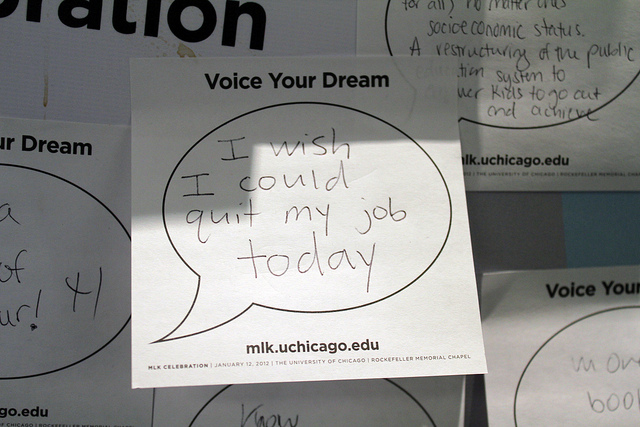 ration
for all, no matter
socioeconomic status.
A restructuring of the public
system to
kids to go out
and achieve
lk.uchicago.edu
THE UNIVERSITY OF CHICAGO | ROCKEFELLER MEMORIAL CHAPEL
Voice Your Dream
I wish
I could
quit my job
today
mlk.uchicago.edu
MLK CELEBRATION | JANUARY 12, 2012 | THE UNIVERSITY OF CHICAGO | ROCKEFELLER MEMORIAL CHAPEL
ur Dream
a
of
ur!
go.edu
ROCKEFELLER MEMORIAL
Know
Voice Your
more
boo